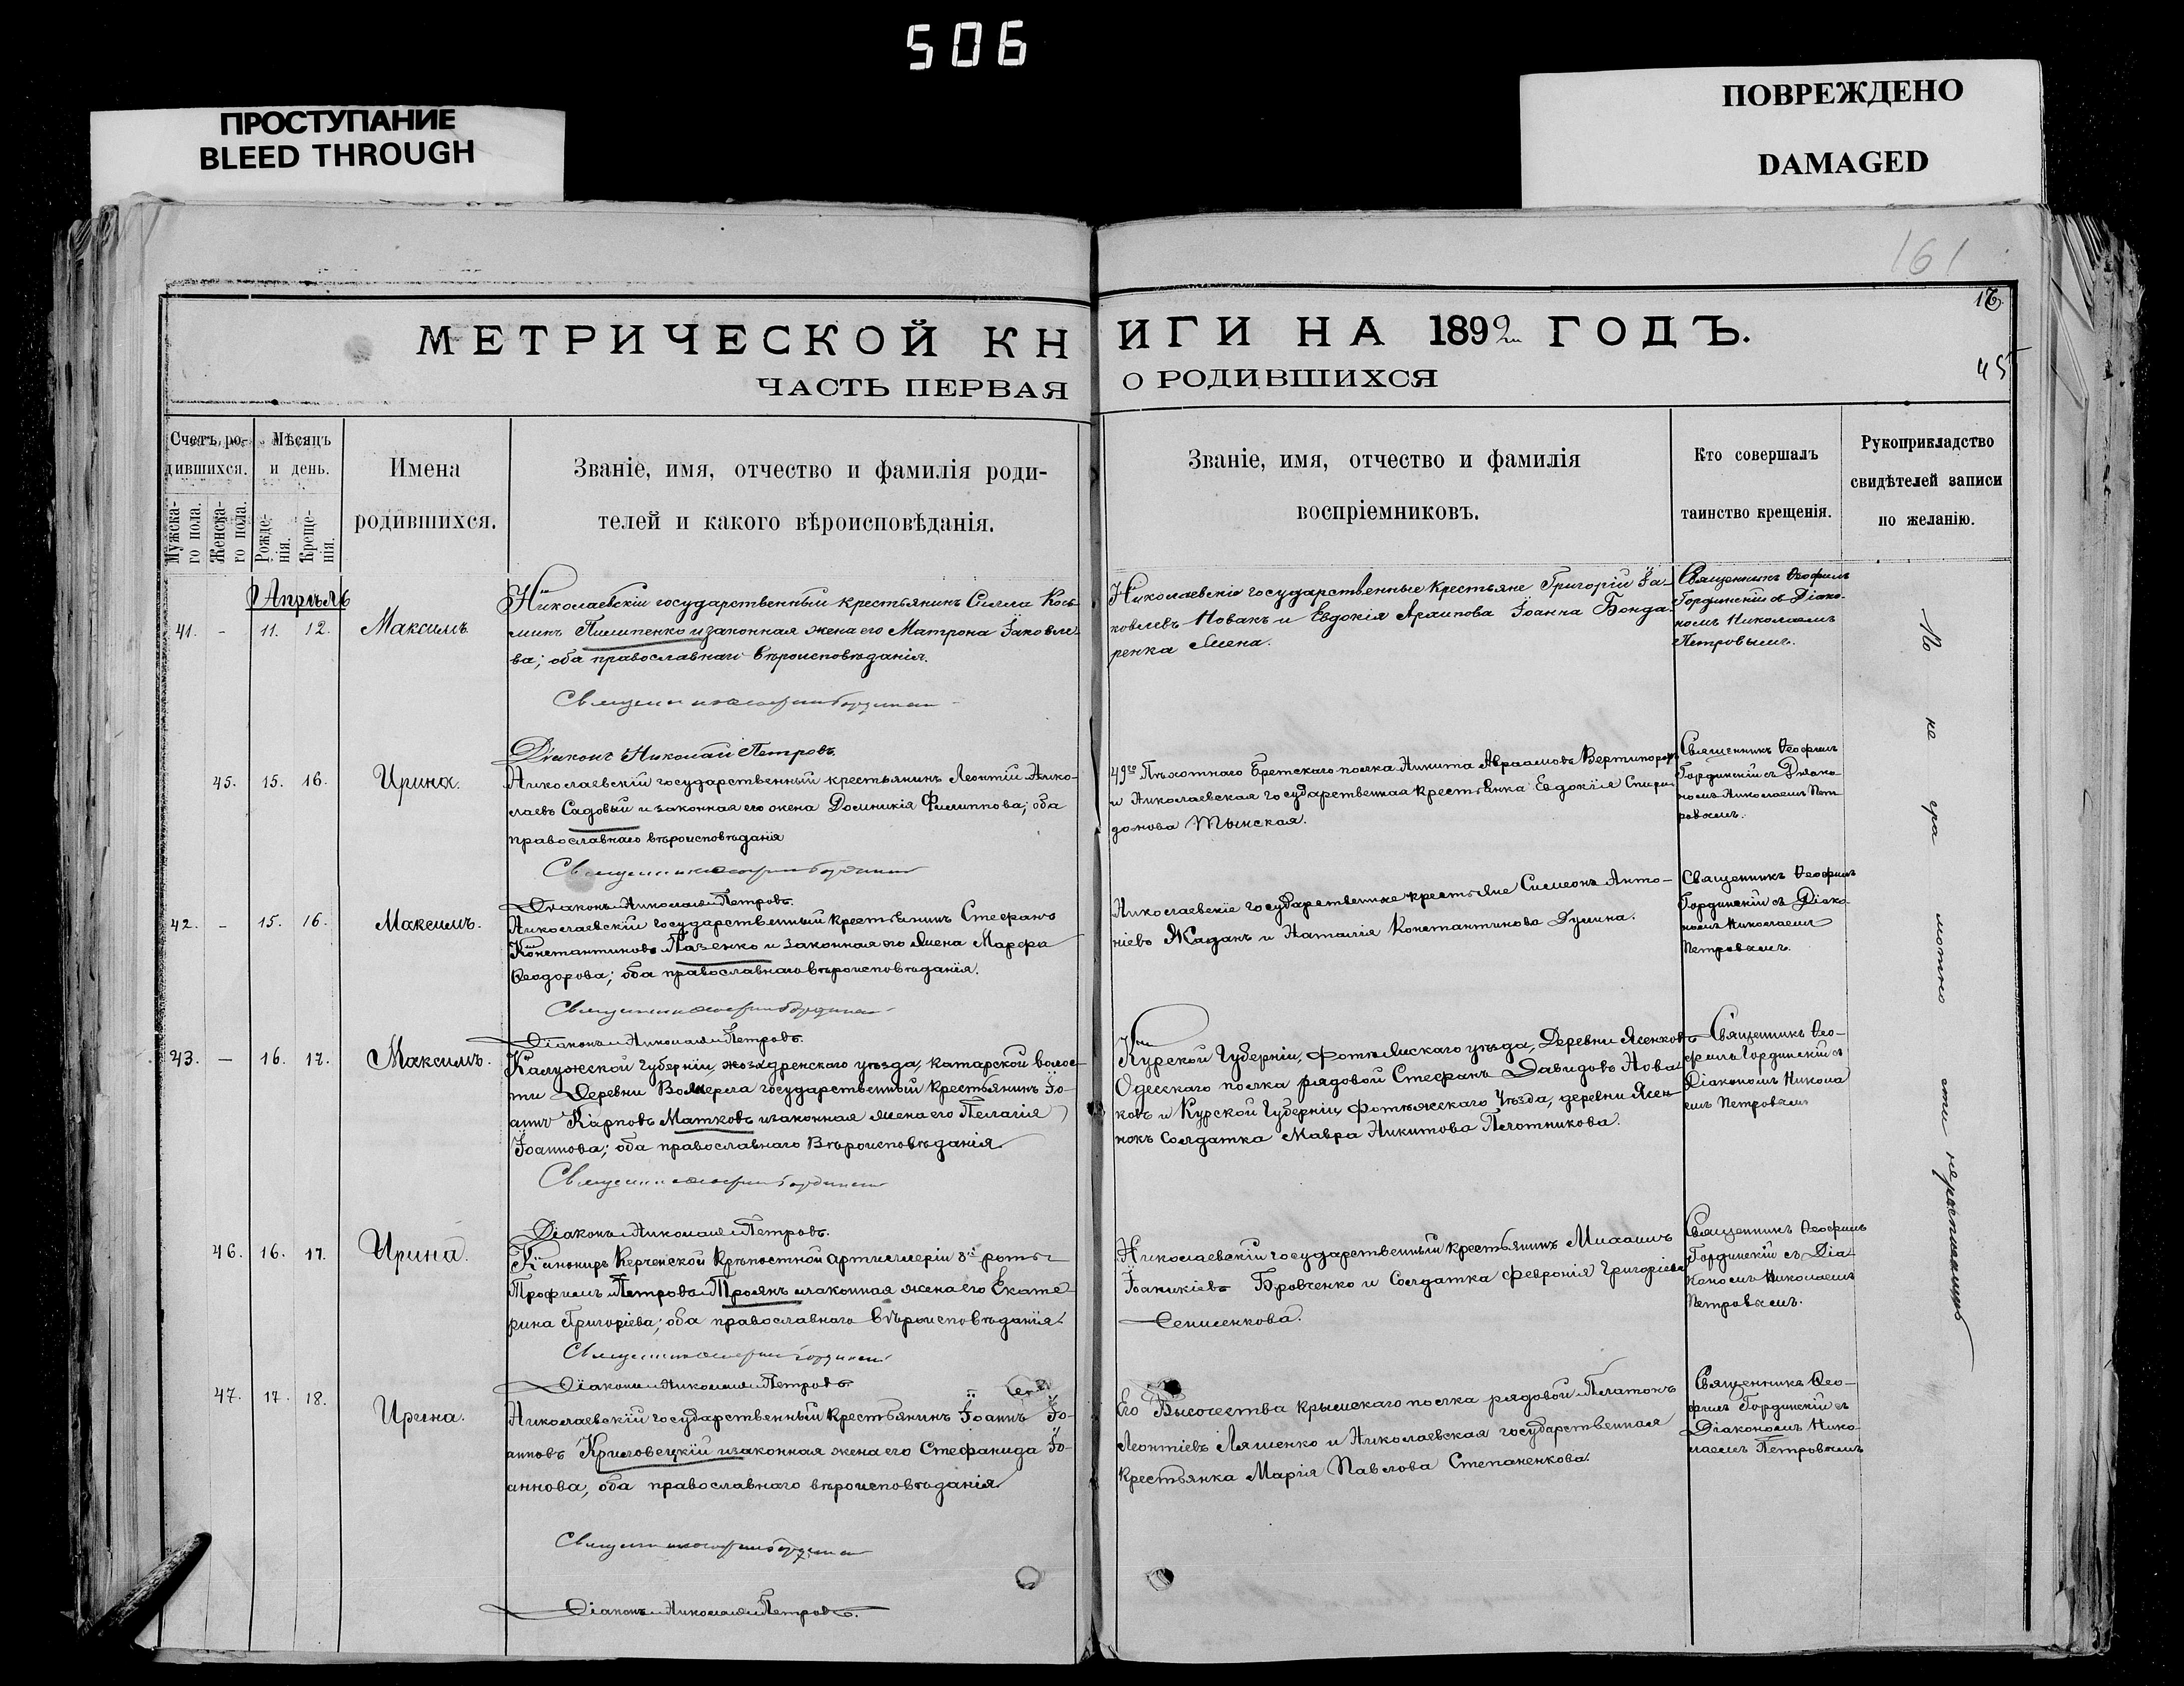 506
ПРОСТУПАНИЕ
BLEED THROUGH
ПОВРЕЖДЕНО
DAMAGED
161
16
45
МЕТРИЧЕСКОЙ КНИГИ НА 1892 ГОДЪ.
ЧАСТЬ ПЕРВАЯ О РОДИВШИХСЯ
Счетъ ро-
дившихся.
Мужска-
го пола.
Женска-
го пола.
Мѣсяцъ
и день.
Рожде-
нія.
Креще-
нія.
Имена
родившихся.
Званіе, имя, отчество и фамилія роди-
телей и какого вѣроисповѣданія.
Званіе, имя, отчество и фамилія
воспріемниковъ.
Кто совершалъ
таинство крещенія.
Рукоприкладство
свидѣтелей записи
по желанію.
Апрѣль
41. - 11. 12. Максимъ.
Николаевскій государственный крестьянинъ Силла Кось-
минъ Пилипенко и законная жена его Матрона Іаковле-
ва; оба православнаго вѣроисповѣданія.
Николаевскіе государственные крестьяне Григорій Іа-
ковлевъ Новакъ и Евдокія Іоанна Бонда-
ренка жена.
Священникъ Ѳеофилъ
Гординскій съ Діако-
номъ Николаемъ
Петровымъ.
Діаконъ Николай Петровъ.
45. 15. 16. Ирина.
Николаевскій государственный крестьянинъ Леонтій Нико-
лаевъ Садовый и законная его жена Домникія Филиппова; оба
православнаго вѣроисповѣданія
49го Пѣхотнаго Бретскаго полка Никита Авраамовъ
и Николаевская государственная крестьянка Евдокія Спири-
донова Тынская.
Священникъ Ѳеофилъ
Гординскій съ Діако-
номъ Николаемъ Пет-
ровымъ.
Діаконъ Николай Петровъ.
42. - 15. 16. Максимъ.
Николаевскій государственный крестьянинъ Стефанъ
Константиновъ Лазенко и законная его жена Марфа
Ѳеодорова; оба православнаго вѣроисповѣданія.
Николаевскіе государственные крестьяне Симеонъ Анто-
ніевъ Жаданъ и Наталія Константинова Думина.
Священникъ Ѳеофилъ
Гординскій съ Діако-
номъ Николаемъ
Петровымъ.
Діаконъ Николай Петровъ.
43. - 16. 17. Максимъ.
Калужской Губерніи, уѣзда, волос-
ти Деревни государственный крестьянинъ Іо-
аннъ Карповъ Матковъ и законная жена его Пелагія
Іоаннова; оба православнаго вѣроисповѣданія.
Курской Губерніи, уѣзда, Деревни
Одесскаго полка рядовой Стефанъ Давидовъ Нова-
ковъ и Курской Губерніи уѣзда, деревни Ясен-
нокъ солдатка Мавра Никитова Плотникова.
Священникъ Ѳео-
филъ Гординскій съ
Діакономъ Никола-
емъ Петровымъ
Діаконъ Николай Петровъ.
46. 16. 17. Ирина.
Канониръ Керченской Крѣпостной артиллеріи 3й роты
Трофимъ Петровъ Троянъ и законная жена его Екате-
рина Григоріева; оба православнаго вѣроисповѣданія.
Николаевскій государственный крестьянинъ Михаилъ
Іоанникіевъ Бровченко и Солдатка Февронія Григоріева
Семененкова.
Священникъ Ѳеофилъ
Гординскій съ Діа-
кономъ Николаемъ
Петровымъ.
Діаконъ Николай Петровъ.
47. 17. 18. Ирина.
Николаевскій государственный крестьянинъ Іоаннъ Іо-
анновъ и законная жена его Стефанида Іо-
аннова, оба православнаго вѣроисповѣданія.
Его Высочества крымскаго полка рядовой Платонъ
Леонтіевъ Ляшенко и Николаевская государственная
крестьянка Марія Павлова Степаненкова.
Священникъ Ѳео-
филъ Гординскій съ
Діакономъ Нико-
лаемъ Петровымъ
Діаконъ Николай Петровъ.